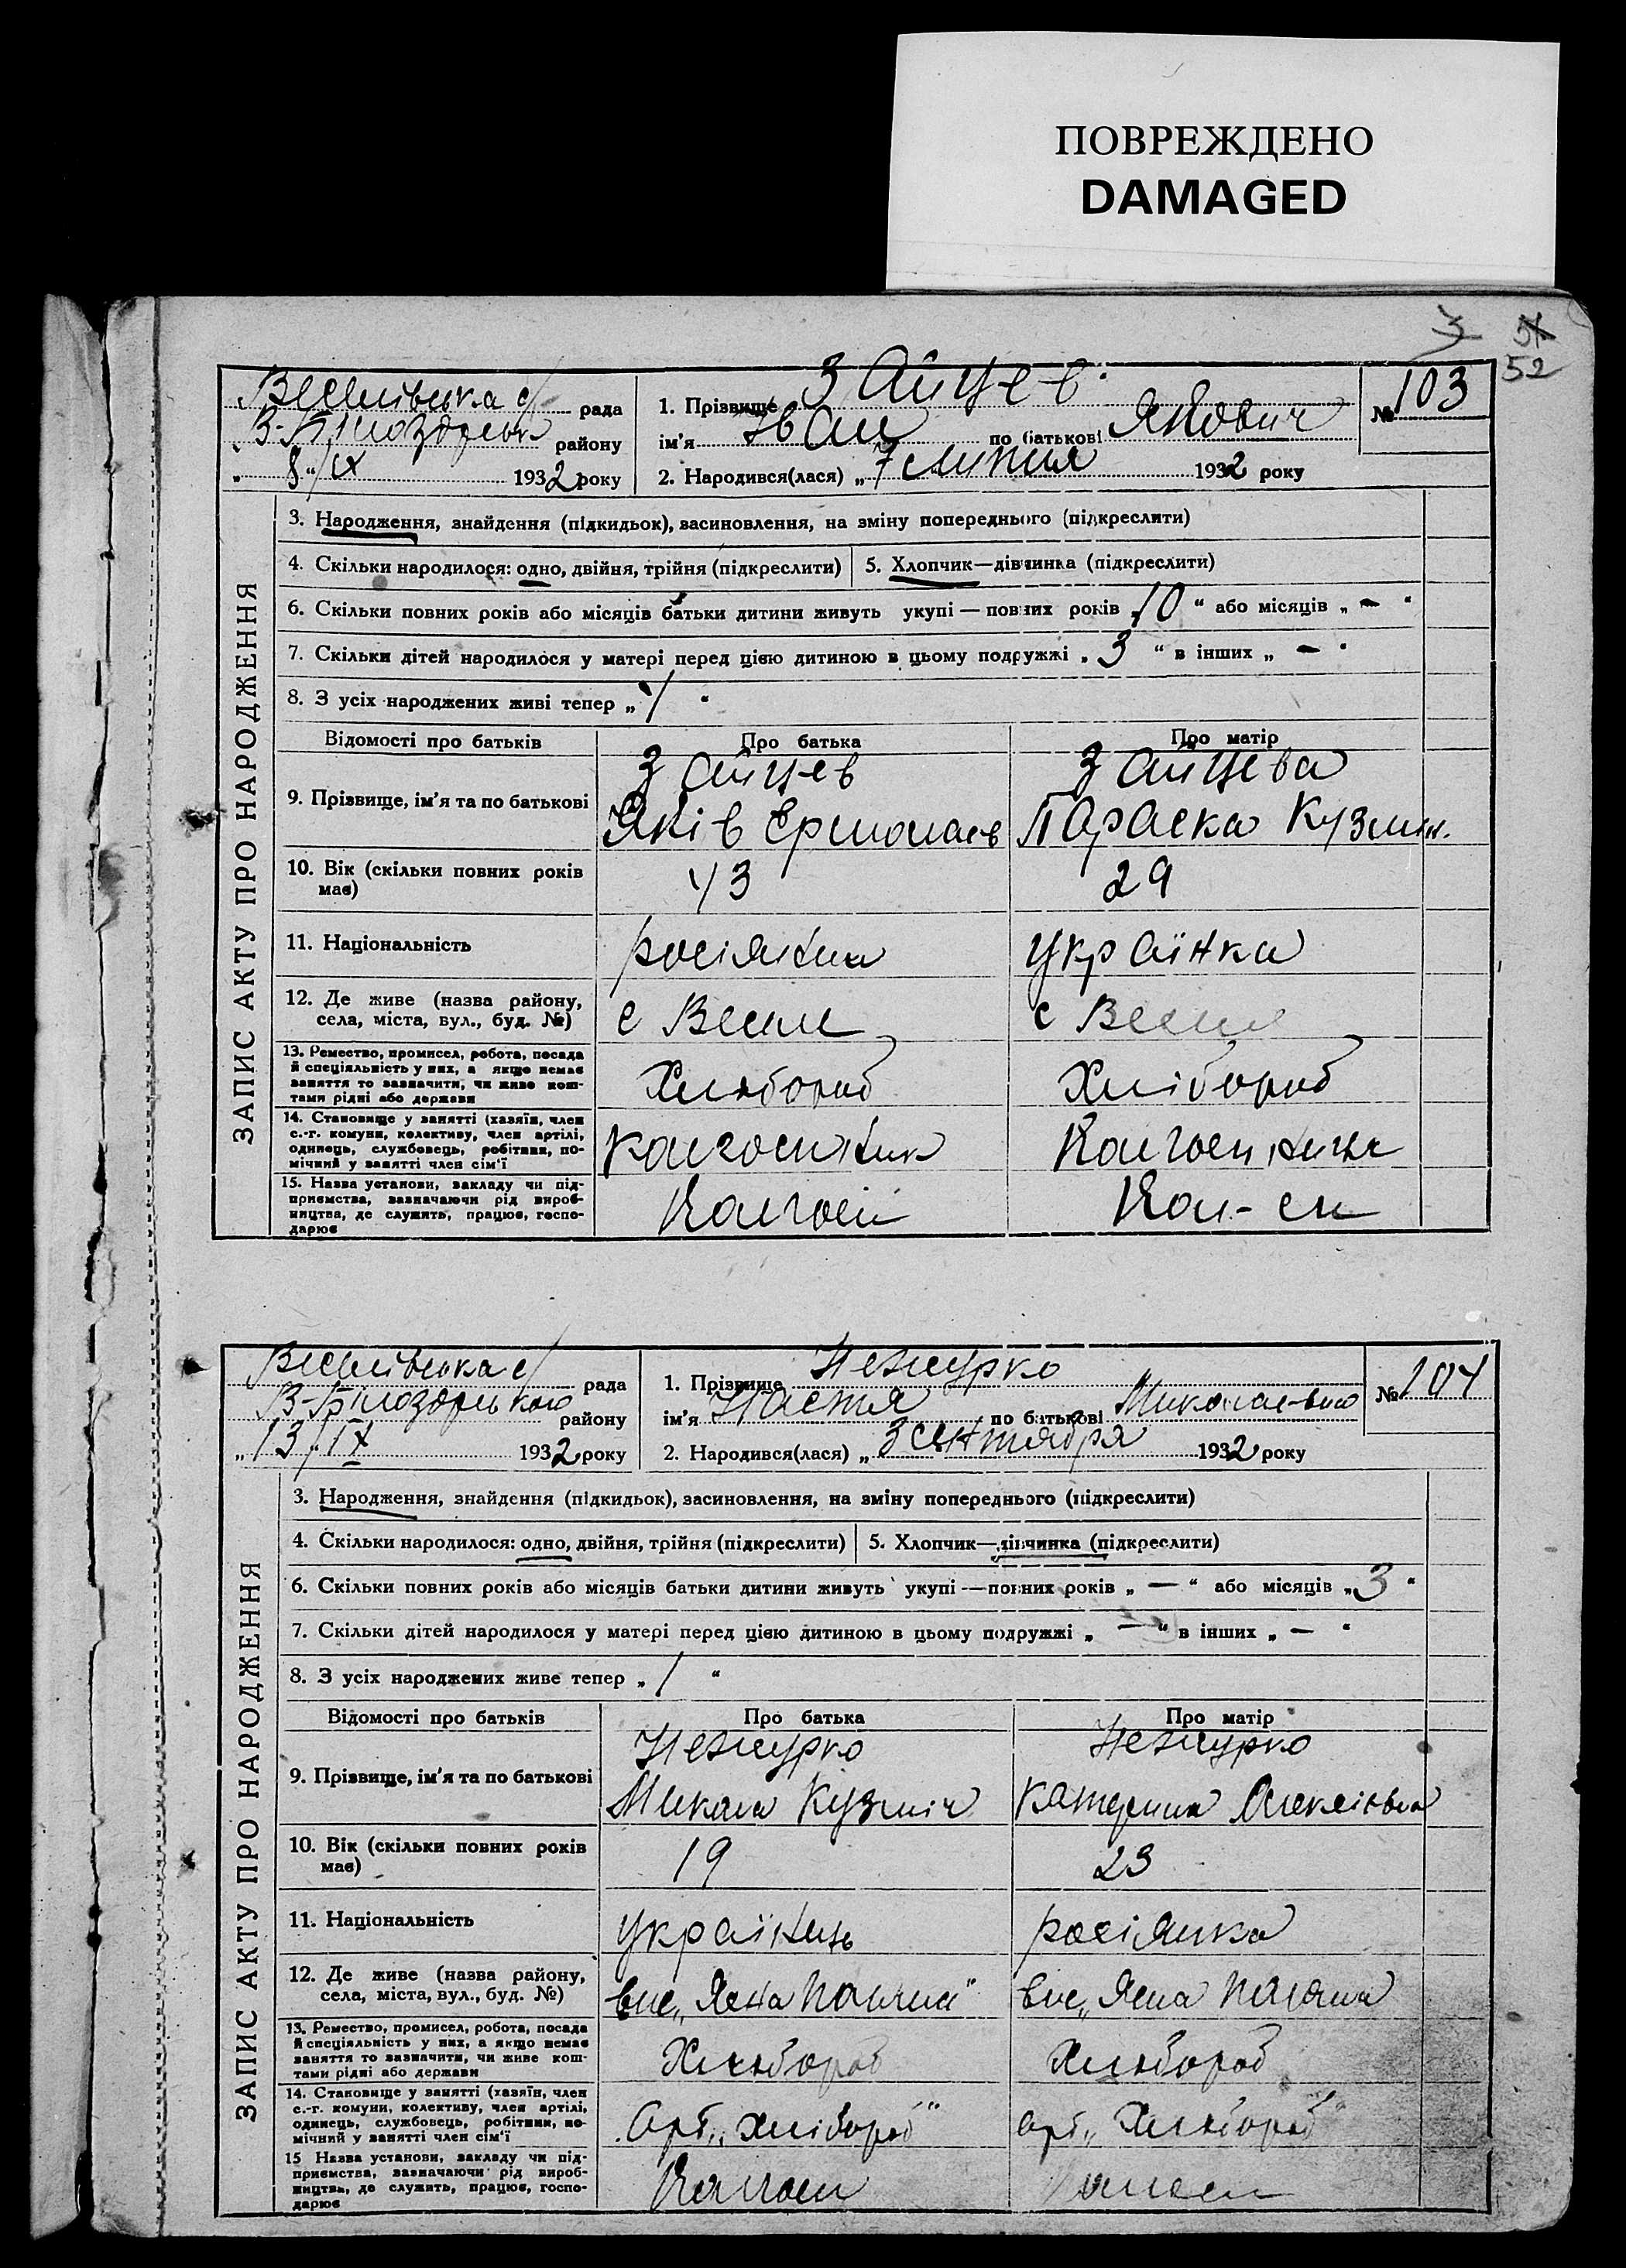 ПОВРЕЖДЕНО
DAMAGED
52
103
рада 1. Прізвище Зайцев № 103
району ім'я Іван по батькові Якович
„ 8 "/IX 1932 року 2. Народився(лася) „ 7 липня 1932 року
ЗАПИС АКТУ ПРО НАРОДЖЕННЯ
3. Народження, знайдення (підкидьок), засиновлення, на зміну попереднього (підкреслити)
4. Скільки народилося: одно, двійня, трійня (підкреслити) 5. Хлопчик—дівчинка (підкреслити)
6. Скільки повних років або місяців батьки дитини живуть укупі — повних років „10“ або місяців „ — “
7. Скільки дітей народилося у матері перед цією дитиною в цьому подружжі „3“ в інших „ — “
8. З усіх народжених живі тепер „ “
Відомості про батьків Про батька Про матір
9. Прізвище, ім'я та по батькові Зайцев Зайцева
Яків Параска Кузмин.
10. Вік (скільки повних років має) 43 29
11. Національність українка
12. Де живе (назва району, села, міста, вул., буд. №) с с
13. Ремество, промисел, робота, посада й спеціяльність у них, а якщо немає заняття то зазначити, чи живе коштами рідні або держави Хлібороб Хлібороб
14. Становище у занятті (хазяїн, член с.-г. комуни, колективу, член артілі, одинець, службовець, робітник, помічний у занятті член сім'ї
15. Назва установи, закладу чи підприємства, зазначаючи рід виробництва, де служить, працює, господарює
рада 1. Прізвище № 104
району ім'я Настя по батькові
„13/IX 1932 року 2. Народився(лася) „ 3 сентября 1932 року
ЗАПИС АКТУ ПРО НАРОДЖЕННЯ
3. Народження, знайдення (підкидьок), засиновлення, на зміну попереднього (підкреслити)
4. Скільки народилося: одно, двійня, трійня (підкреслити) 5. Хлопчик—дівчинка (підкреслити)
6. Скільки повних років або місяців батьки дитини живуть укупі — повних років „ — “ або місяців „3“
7. Скільки дітей народилося у матері перед цією дитиною в цьому подружжі „ — “ в інших „ — “
8. З усіх народжених живе тепер „1“
Відомості про батьків Про батька Про матір
9. Прізвище, ім'я та по батькові
Микола Кузміч Катерина
10. Вік (скільки повних років має) 19 23
11. Національність українець росіянка
12. Де живе (назва району, села, міста, вул., буд. №) вис „Ясна Поляна" вис „Ясна Поляна
13. Ремество, промисел, робота, посада й спеціяльність у них, а якщо немає заняття то зазначити, чи живе коштами рідні або держави Хлібороб Хлібороб
14. Становище у занятті (хазяїн, член с.-г. комуни, колективу, член артілі, одинець, службовець, робітник, помічний у занятті член сім'ї Арт. „Хлібороб" арт. „Хлібороб"
15 Назва установи, закладу чи підприємства, зазначаючи рід виробництва, де служить, працює, господарює